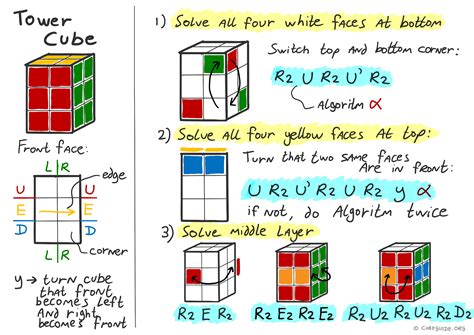 Tower
Cube
Front face:
L R
edge
U U
E E
D D
corner
L R
y → turn cube
that front
becomes left
And right
becomes front
1) Solve all four white faces at bottom
Switch top and bottom corner:
R2 U R2 U' R2
Algoritm α
2) Solve all four yellow faces at top:
Turn that two same faces
are in front:
U R2 U' R2 U R2 y α
if not, do Algoritm twice
3) Solve middle layer
R2 E R2
R2 E2 R2 E2
R2 U2 R2 U2 R2 D2
© cubeguide.org